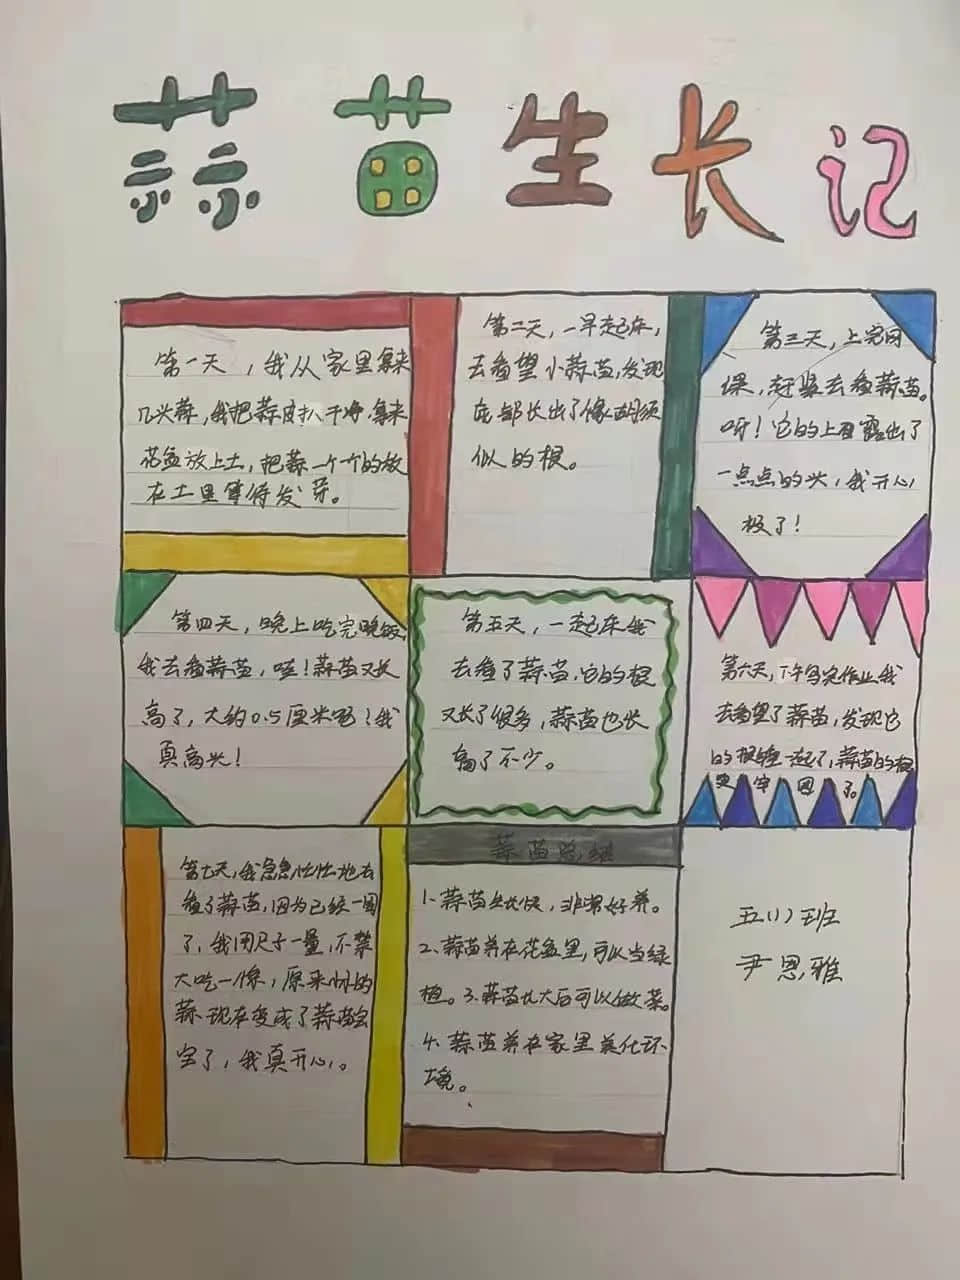 蒜苗生长记
第一天，我从家里拿来
几头蒜，我把蒜皮扒干净.拿来
花盆放上土，把蒜一个个的放
在土里等待发芽。
第二天，一早起床，
去看望小蒜苗，发现
底部长出了像胡须
似的根。
第三天，上完网
课，赶紧去看蒜苗。
呀！它的上面露出了
一点点的头，我开心
极了！
第四天，晚上吃完晚饭
我去看蒜苗，哇！蒜苗又长
高了，大约0.5厘米呢？我
真高兴！
第五天，一起床我
去看了蒜苗.它的根
又长了很多，蒜苗也长
高了不少。
第六天，下午写完作业我
去看望了蒜苗，发现它
的根缠一起了，蒜苗的根
变牢固了。
第七天，我急急忙忙地去
看了蒜苗，因为已经一周
了，我用尺子一量，不禁
大吃一惊，原来小小的
蒜现在变成了蒜苗宝
宝了，我真开心。
蒜苗总结
1.蒜苗生长快，非常好养。
2.蒜苗养在花盆里，可以当绿
植。3.蒜苗长大后可以做菜。
4.蒜苗养在家里美化环
境。
五(1)班
尹恩雅